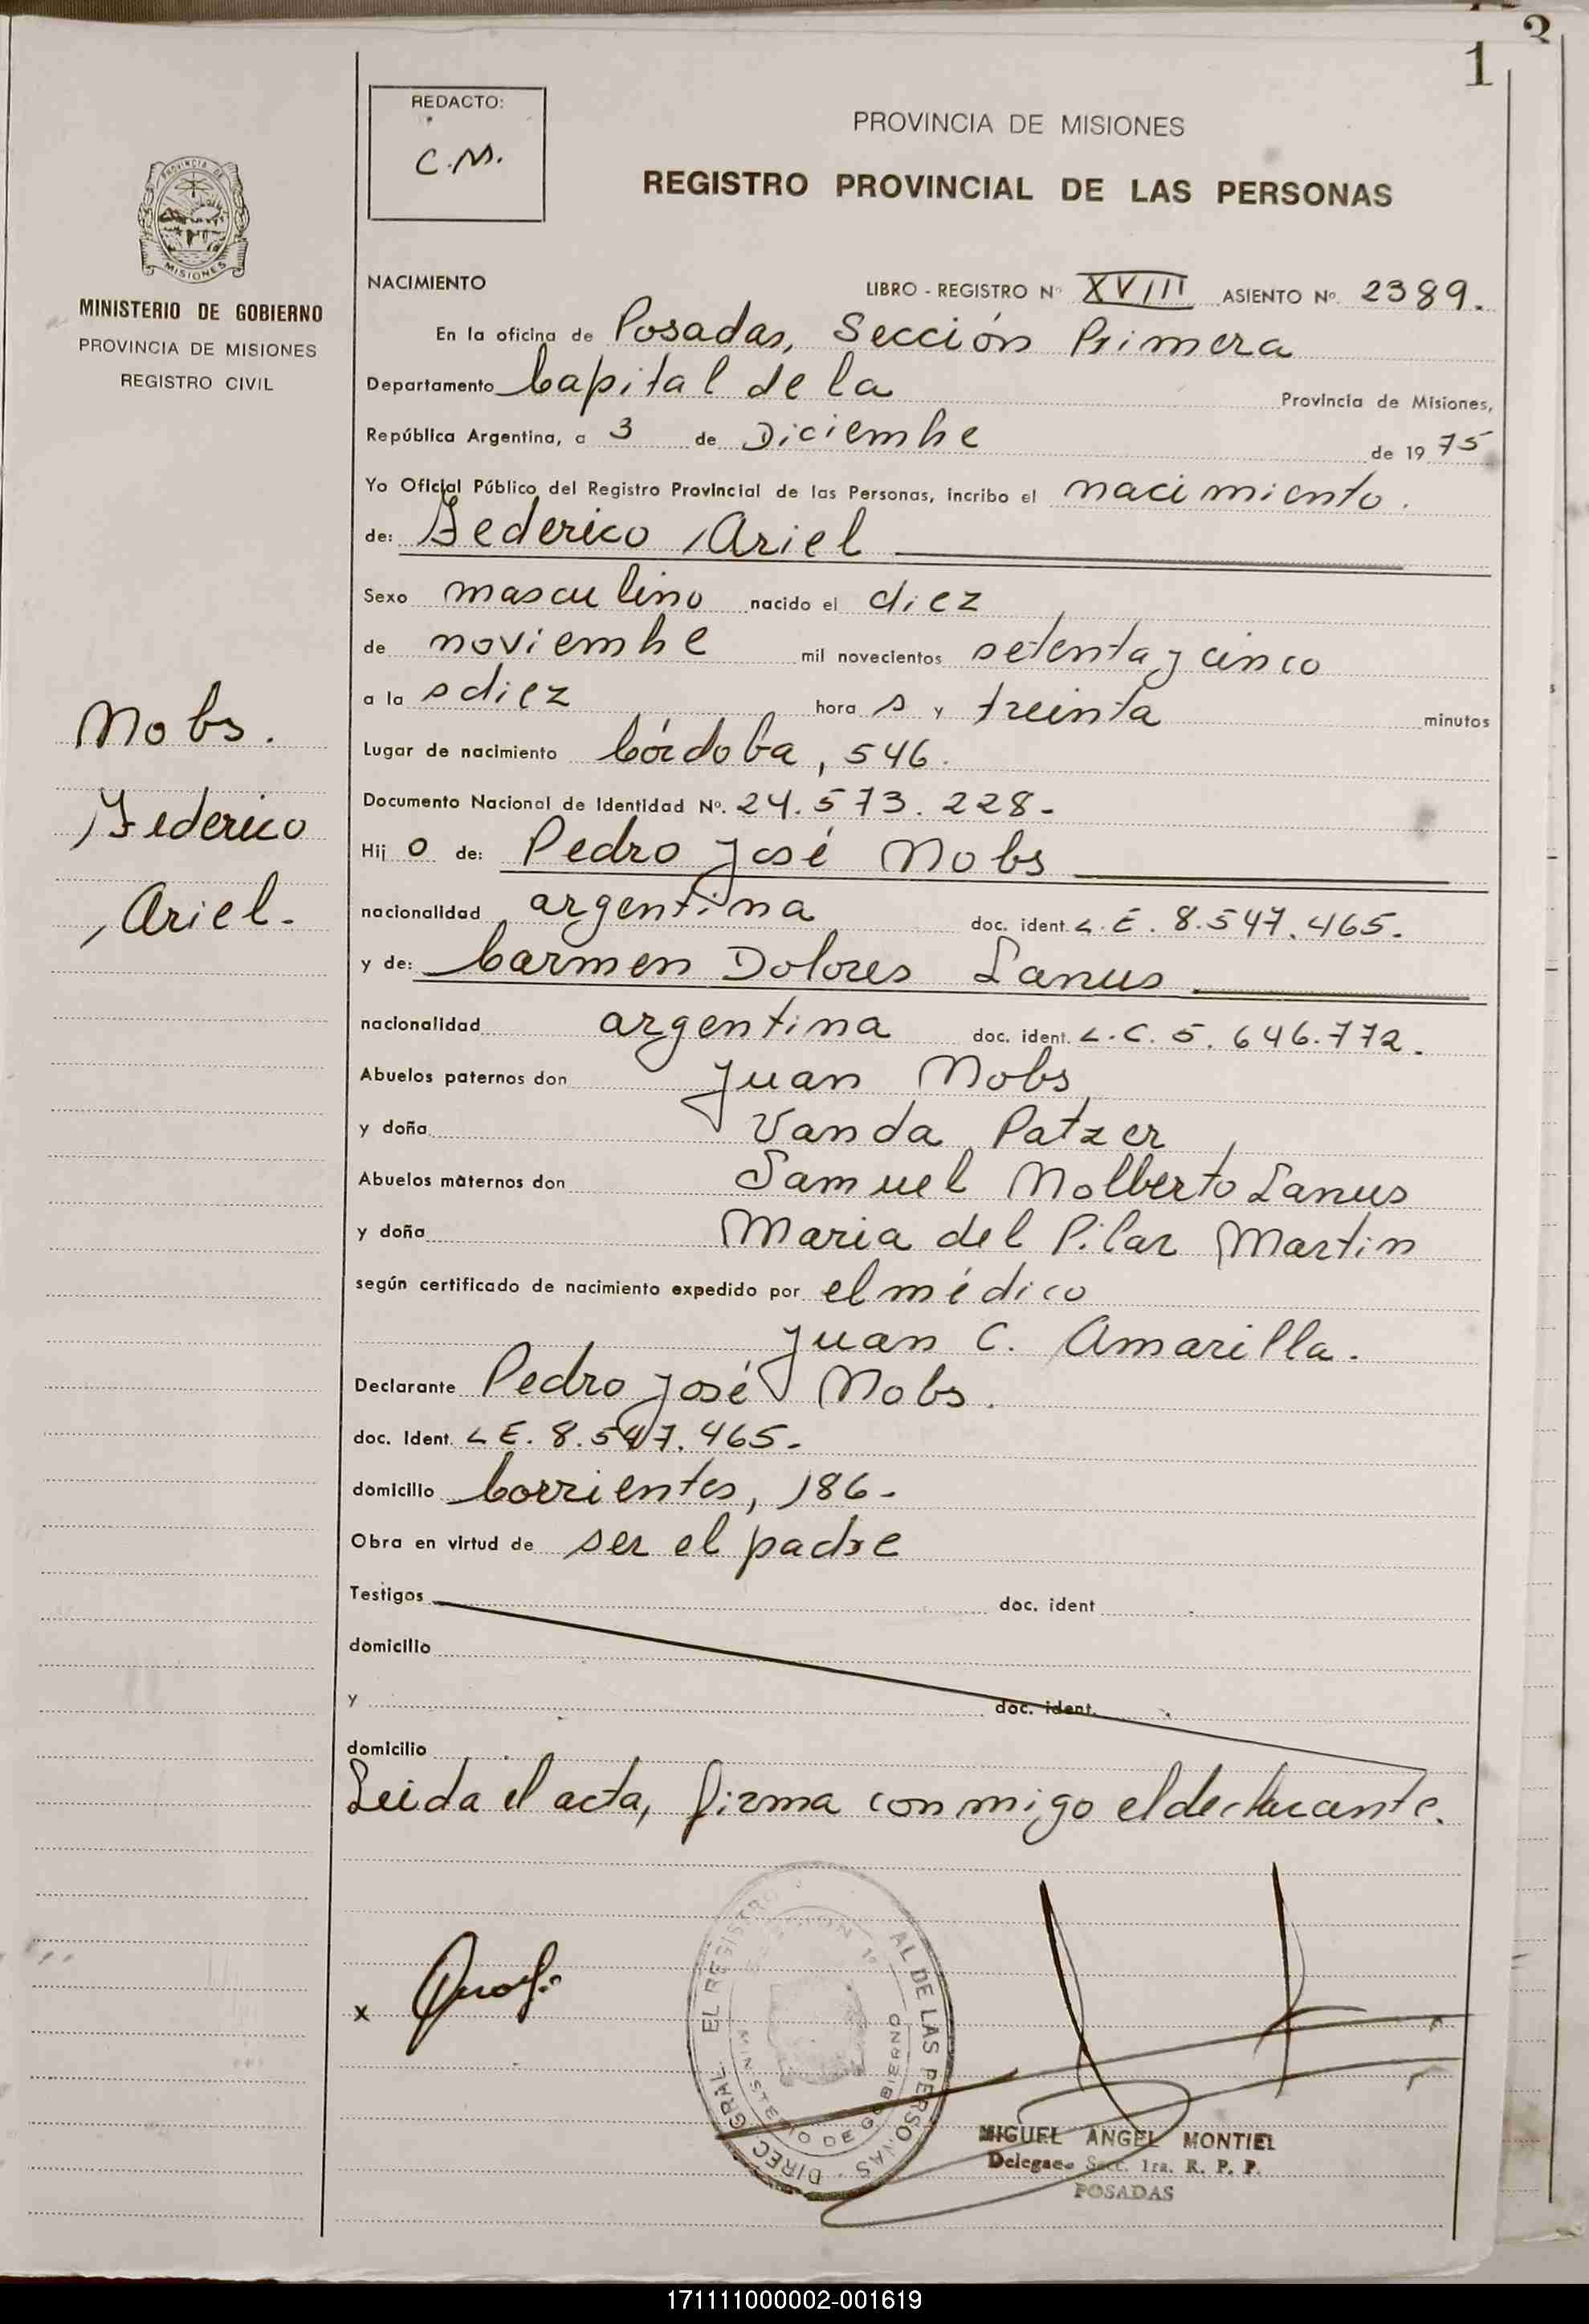 1
3
REDACTO:
C.M.
PROVINCIA DE MISIONES
REGISTRO PROVINCIAL DE LAS PERSONAS
PROVINCIA DE
MISIONES
MINISTERIO DE GOBIERNO
PROVINCIA DE MISIONES
REGISTRO CIVIL
NACIMIENTO
LIBRO - REGISTRO Nº XVIII ASIENTO Nº. 2389.
En la oficina de Posadas, Sección Primera
Departamento Capital de la Provincia de Misiones,
República Argentina, a 3 de Diciembre de 1975
Yo Oficial Público del Registro Provincial de las Personas, incribo el nacimiento.
de: Federico Ariel
Sexo masculino nacido el diez
de noviembre mil novecientos setenta y cinco
a las diez horas y treinta minutos
Lugar de nacimiento Córdoba, 546.
Documento Nacional de Identidad Nº. 24.573.228-
Hijo de: Pedro José Nobs
nacionalidad argentina doc. ident. L.E. 8.547.465.
y de: Carmen Dolores Lanus
nacionalidad argentina doc. ident. L.C. 5.646.772.
Abuelos paternos don Juan Nobs
y doña Vanda Patzer
Abuelos maternos don Samuel Nolberto Lanus
y doña Maria del Pilar Martin
según certificado de nacimiento expedido por el médico
Juan C. Amarilla.
Declarante Pedro José Nobs.
doc. Ident. L E. 8.547.465-
domicilio Corrientes, 186-
Obra en virtud de ser el padre
Testigos doc. ident
domicilio
y doc. ident.
domicilio
Leida el acta, firma conmigo el declarante.
Nobs.
Federico
Ariel-
x
DIREC. GRAL. EL REGISTRO AL DE LAS PERSONAS
MINISTERIO DE GOBIERNO
MIGUEL ANGEL MONTIEL
Delegado Secc. 1ra. R. P. P.
POSADAS
171111000002-001619